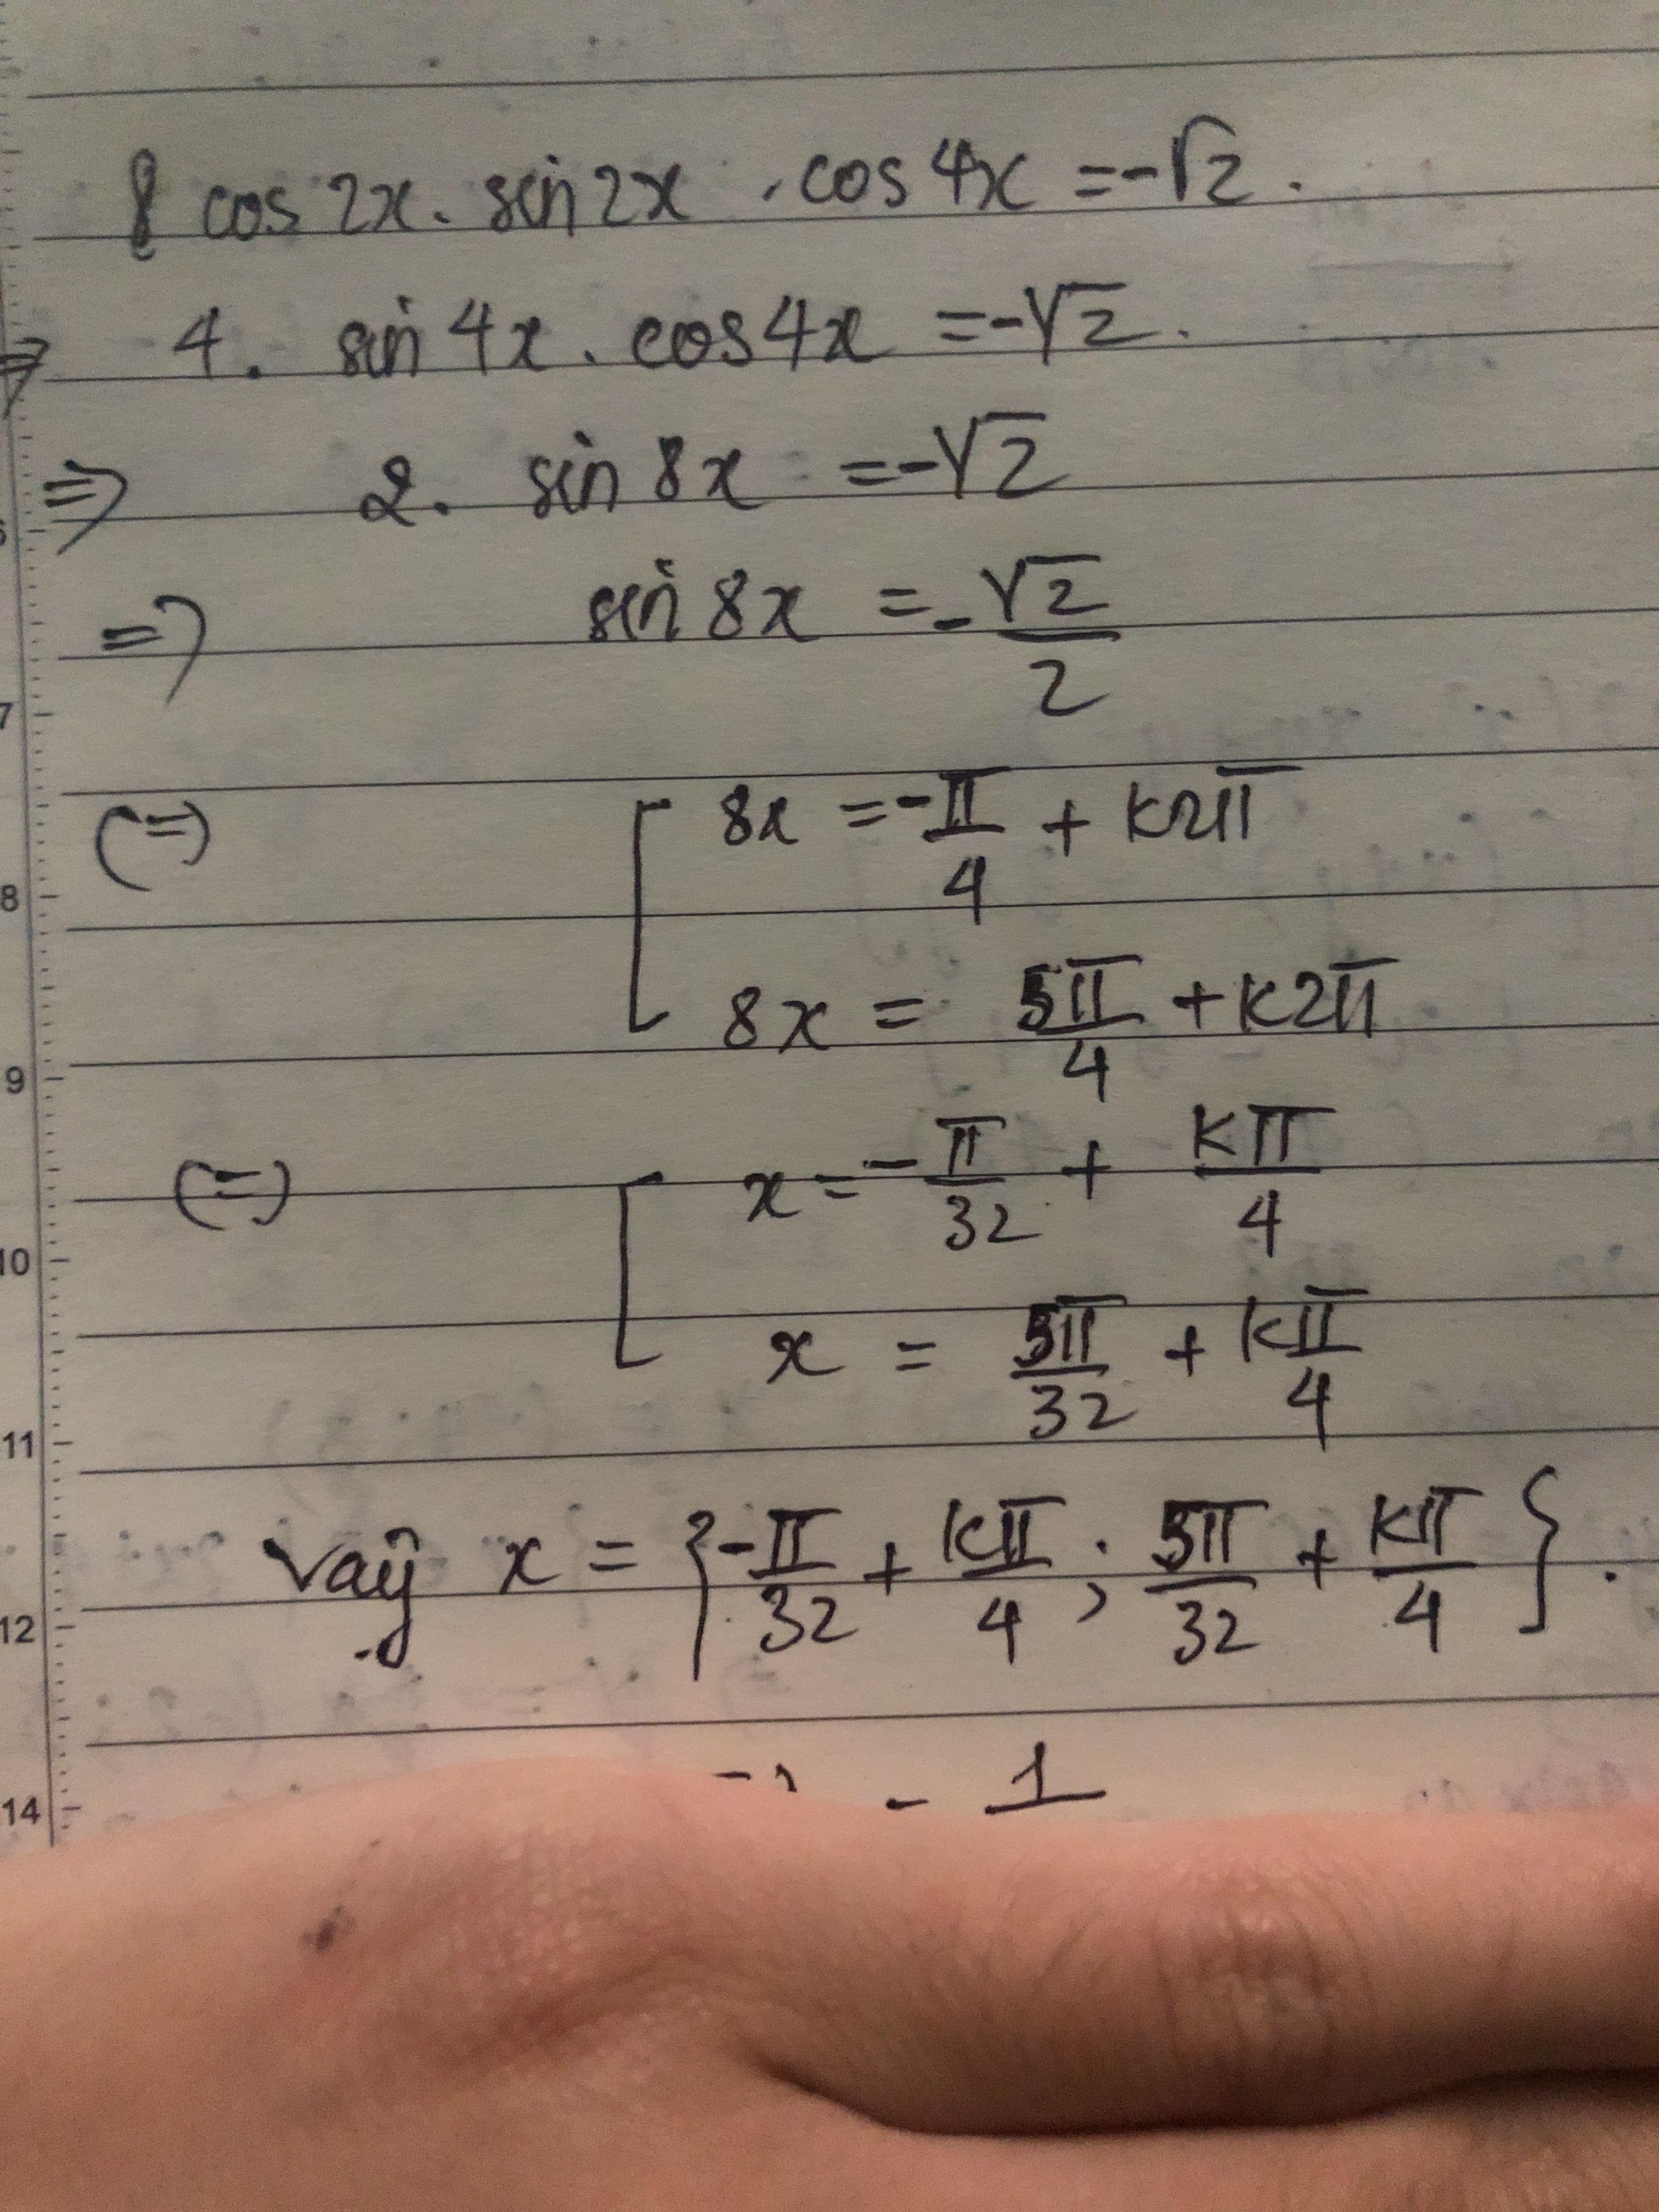 8 cos 2x . sin 2x . cos 4x = -√2 .
=> 4. sin 4x . cos 4x = -√2 .
=> 2. sin 8x = -√2
=> sin 8x = -√2/2
(=) [ 8x = -π/4 + k2π
8x = 5π/4 + k2π
(=) [ x = -π/32 + kπ/4
x = 5π/32 + kπ/4
Vậy x = {-π/32 + kπ/4 ; 5π/32 + kπ/4} .
- 1
7
8
9
10
11
12
14